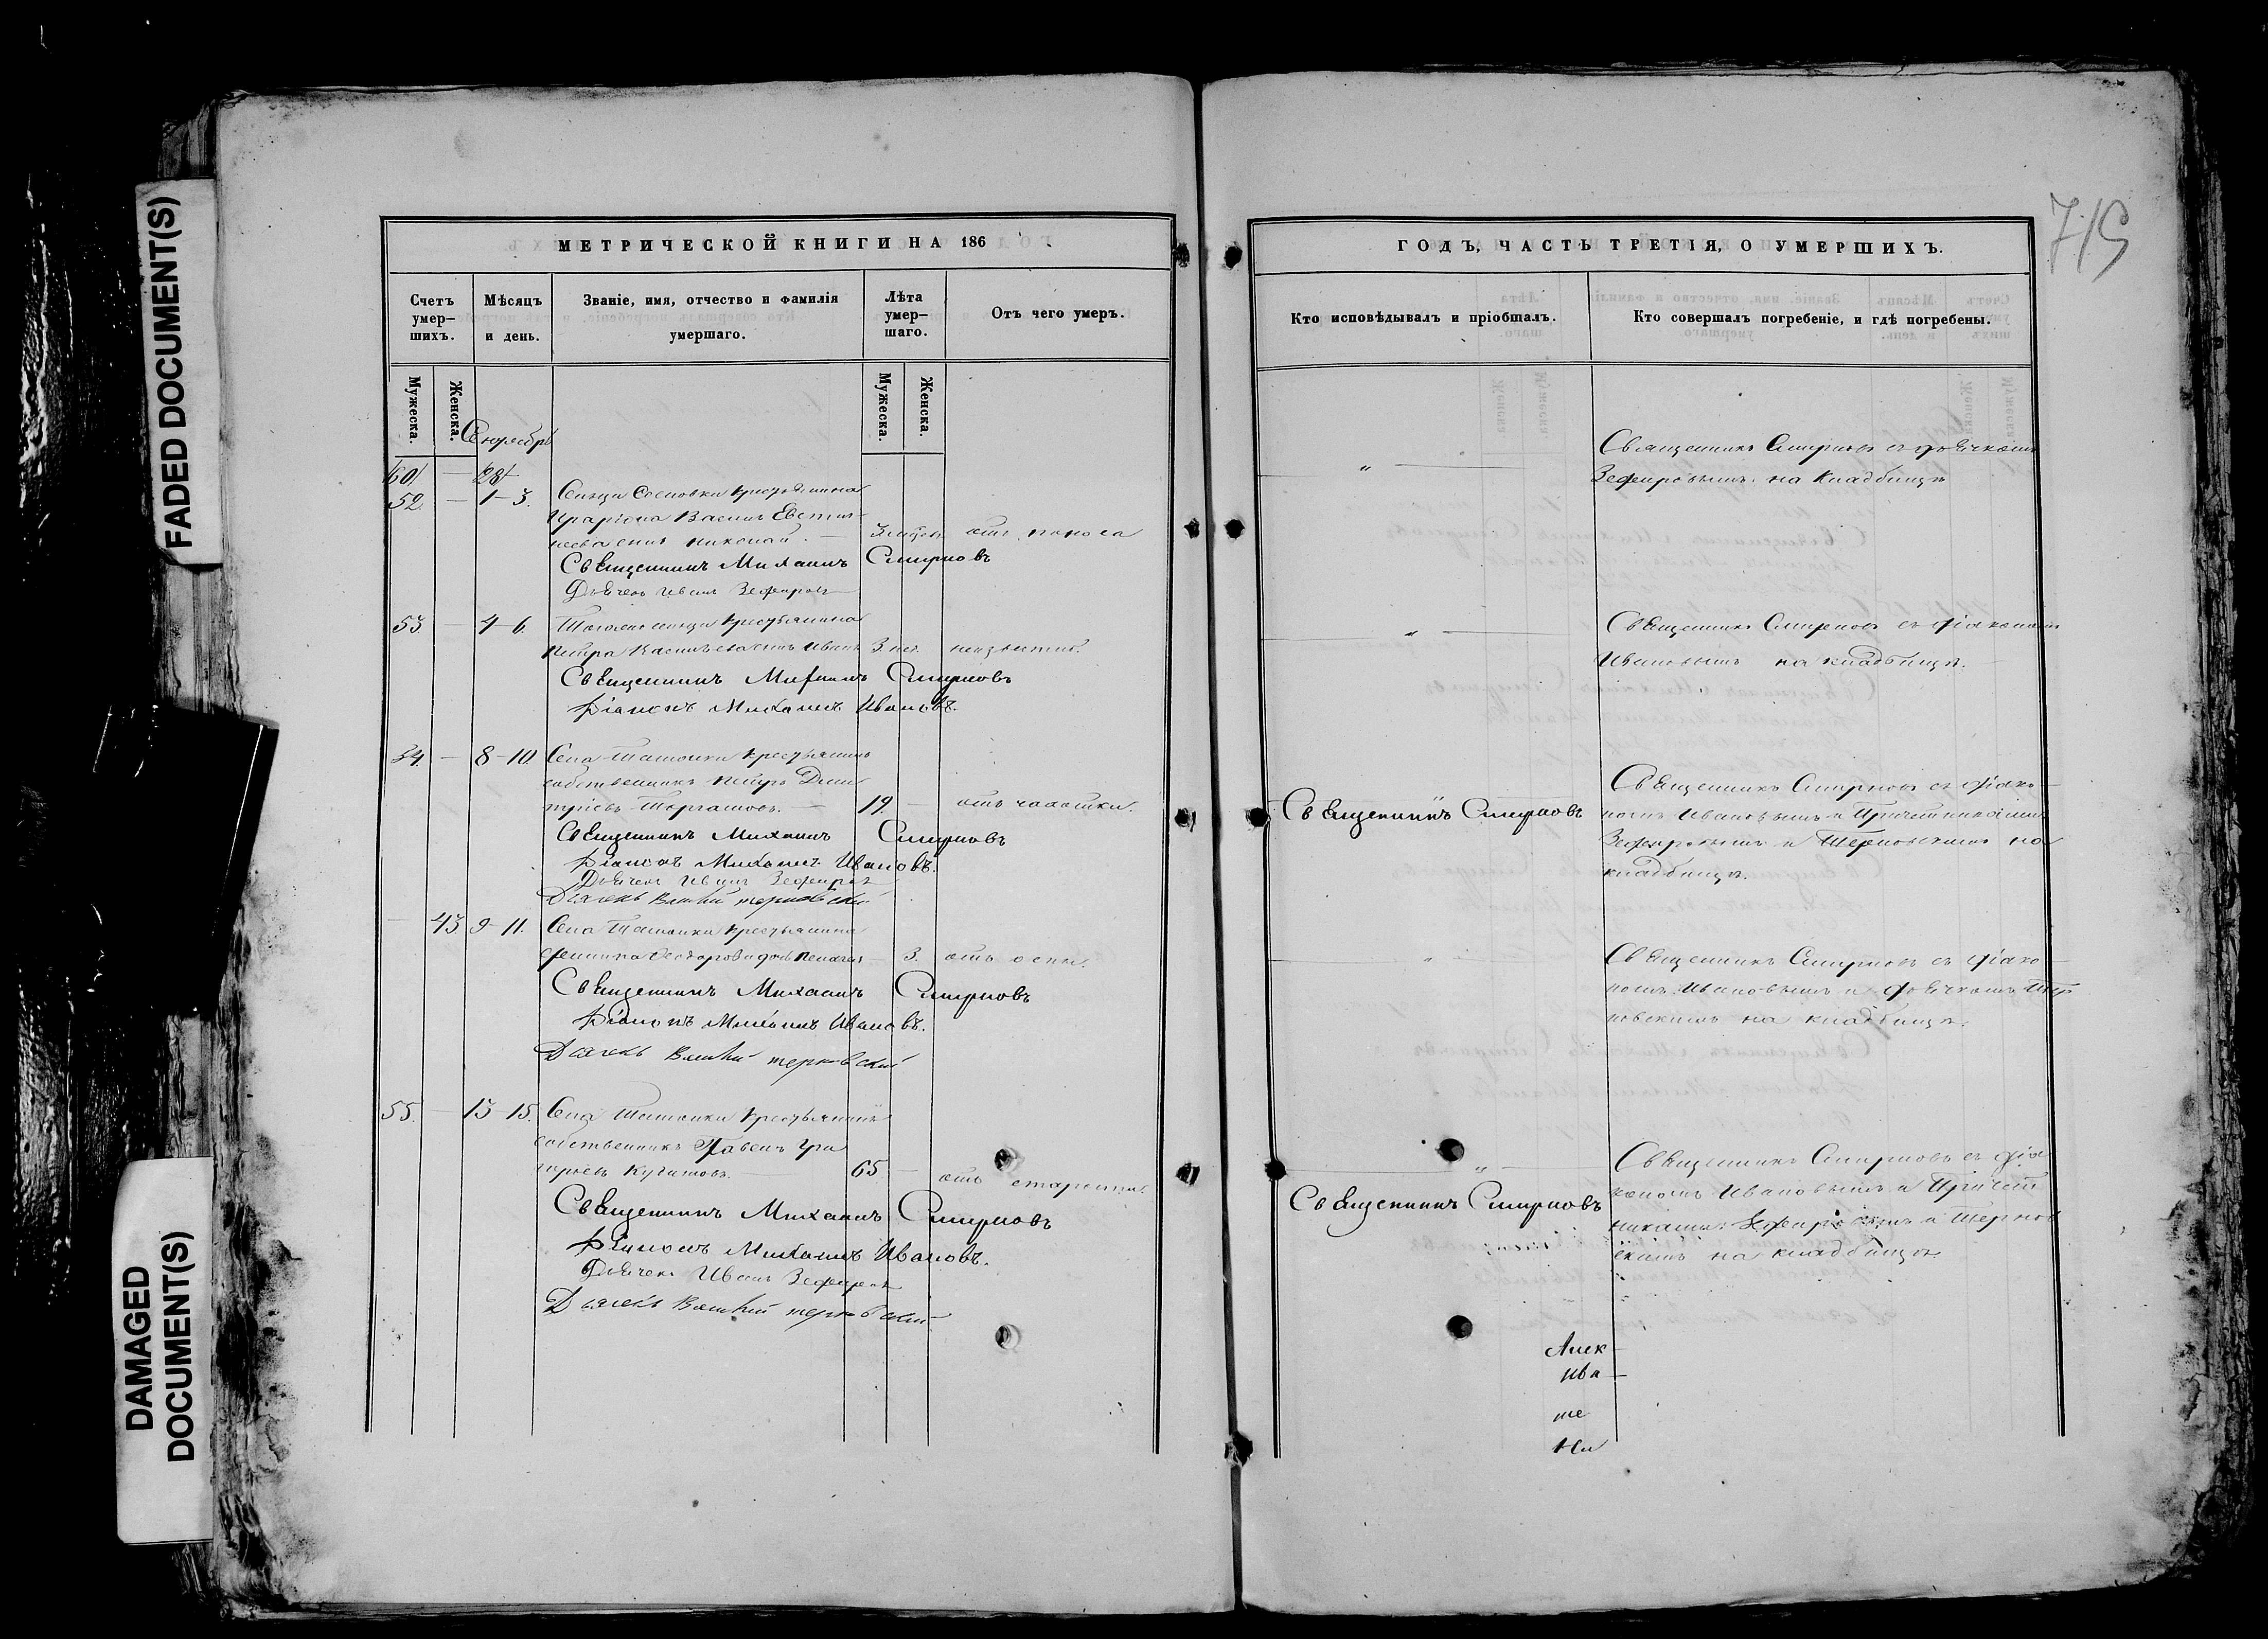 FADED DOCUMENT(S)
DAMAGED
DOCUMENT(S)
МЕТРИЧЕСКОЙ КНИГИ НА 186
Счетъ
умер-
шихъ.
Мѣсяцъ
и день.
Званіе, имя, отчество и фамилія
умершаго.
Лѣта
умер-
шаго.
Отъ чего умеръ.
Мужеска.
Женска.
Мужеска.
Женска.
60 — 28
52. — 1-3. крестьянина
Николай — отъ поноса
Священникъ Михаилъ Смирновъ
Дьячекъ Иванъ Зефировъ
53 — 4-6. крестьянина
Петра Васильева сынъ Иванъ 3
Священникъ Михаилъ Смирновъ
Діаконъ Михаилъ Ивановъ.
54. — 8-10. Села крестьянинъ
собственникъ Петръ Дми
тріевъ — 19. — отъ чахотки.
Священникъ Михаилъ Смирновъ
Діаконъ Михаилъ Ивановъ.
Дьячекъ Иванъ Зефировъ
Дьячекъ терновскій
— 43 9-11. Села крестьянина
Пелагея — 3. отъ оспы.
Священникъ Михаилъ Смирновъ
Діаконъ Михаилъ Ивановъ.
Дьячекъ терновскій
55. — 13-15. Села крестьянинъ
собственникъ Павелъ Гри
горьевъ 65 — отъ старости.
Священникъ Михаилъ Смирновъ
Діаконъ Михаилъ Ивановъ.
Дьячекъ Иванъ Зефировъ
Дьячекъ терновскій
715
ГОДЪ, ЧАСТЬ ТРЕТІЯ, О УМЕРШИХЪ.
Кто исповѣдывалъ и пріобщалъ.
Кто совершалъ погребеніе, и гдѣ погребены.
Священникъ Смирновъ съ дьячкомъ
Зефировымъ на кладбищѣ
Священникъ Смирновъ съ діакономъ
Ивановымъ на кладбищѣ.
Священникъ Смирновъ
Священникъ Смирновъ съ діако
номъ Ивановымъ и Причетниками
Зефировымъ и Терновскимъ на
кладбищѣ.
Священникъ Смирновъ съ діако
номъ Ивановымъ и дьячкомъ Тер
новскимъ на кладбищѣ.
Священникъ Смирновъ
Священникъ Смирновъ съ діа
кономъ Ивановымъ и Причет
никами Зефировымъ и Тернов
скимъ на кладбищѣ.
Алек
ива